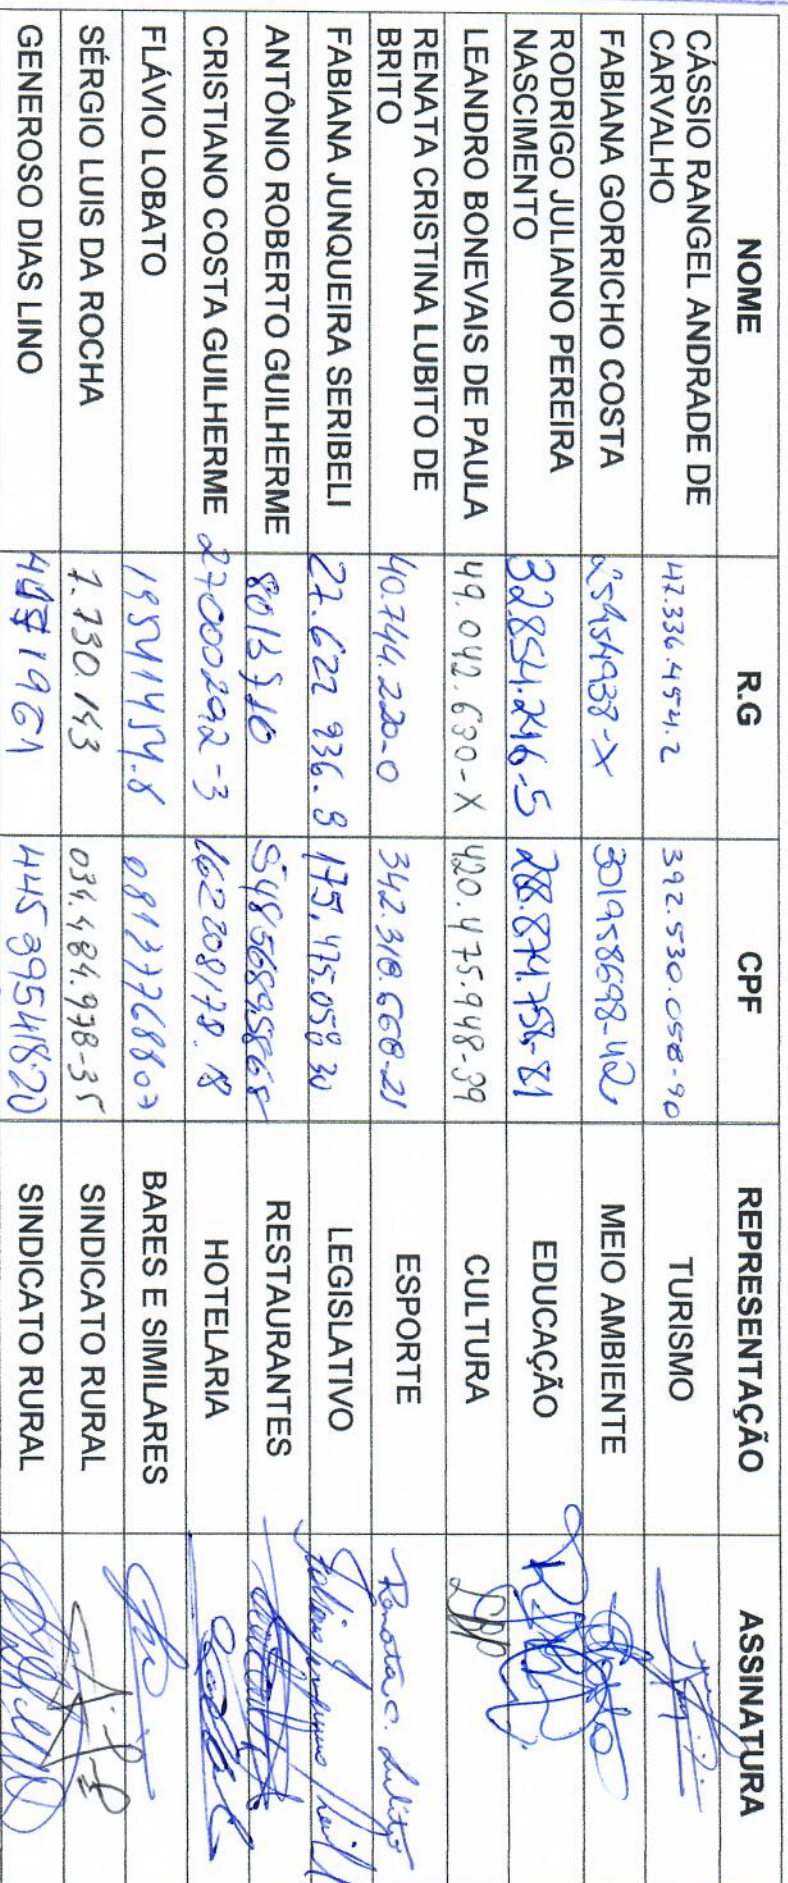 NOME R.G CPF REPRESENTAÇÃO ASSINATURA
CÁSSIO RANGEL ANDRADE DE
CARVALHO 47.336.454.2 392.530.058-90 TURISMO
FABIANA GORRICHO COSTA 25454938-X 301958698-42 MEIO AMBIENTE
RODRIGO JULIANO PEREIRA
NASCIMENTO 32.854.246-5 288.874.758-81 EDUCAÇÃO
LEANDRO BONEVAIS DE PAULA 49.042.630-X 420.475.948-39 CULTURA
RENATA CRISTINA LUBITO DE
BRITO 40.744.220-0 342.318.668-21 ESPORTE Renata C. Lubito
FABIANA JUNQUEIRA SERIBELI 27.622 936.9 175.475.058 30 LEGISLATIVO
ANTÔNIO ROBERTO GUILHERME RESTAURANTES
CRISTIANO COSTA GUILHERME 27000292-3 162208178.18 HOTELARIA
FLÁVIO LOBATO 19541454.8 08127768803 BARES E SIMILARES
SÉRGIO LUIS DA ROCHA 7.730.143 034.484.998-35 SINDICATO RURAL
GENEROSO DIAS LINO 44539541820 SINDICATO RURAL